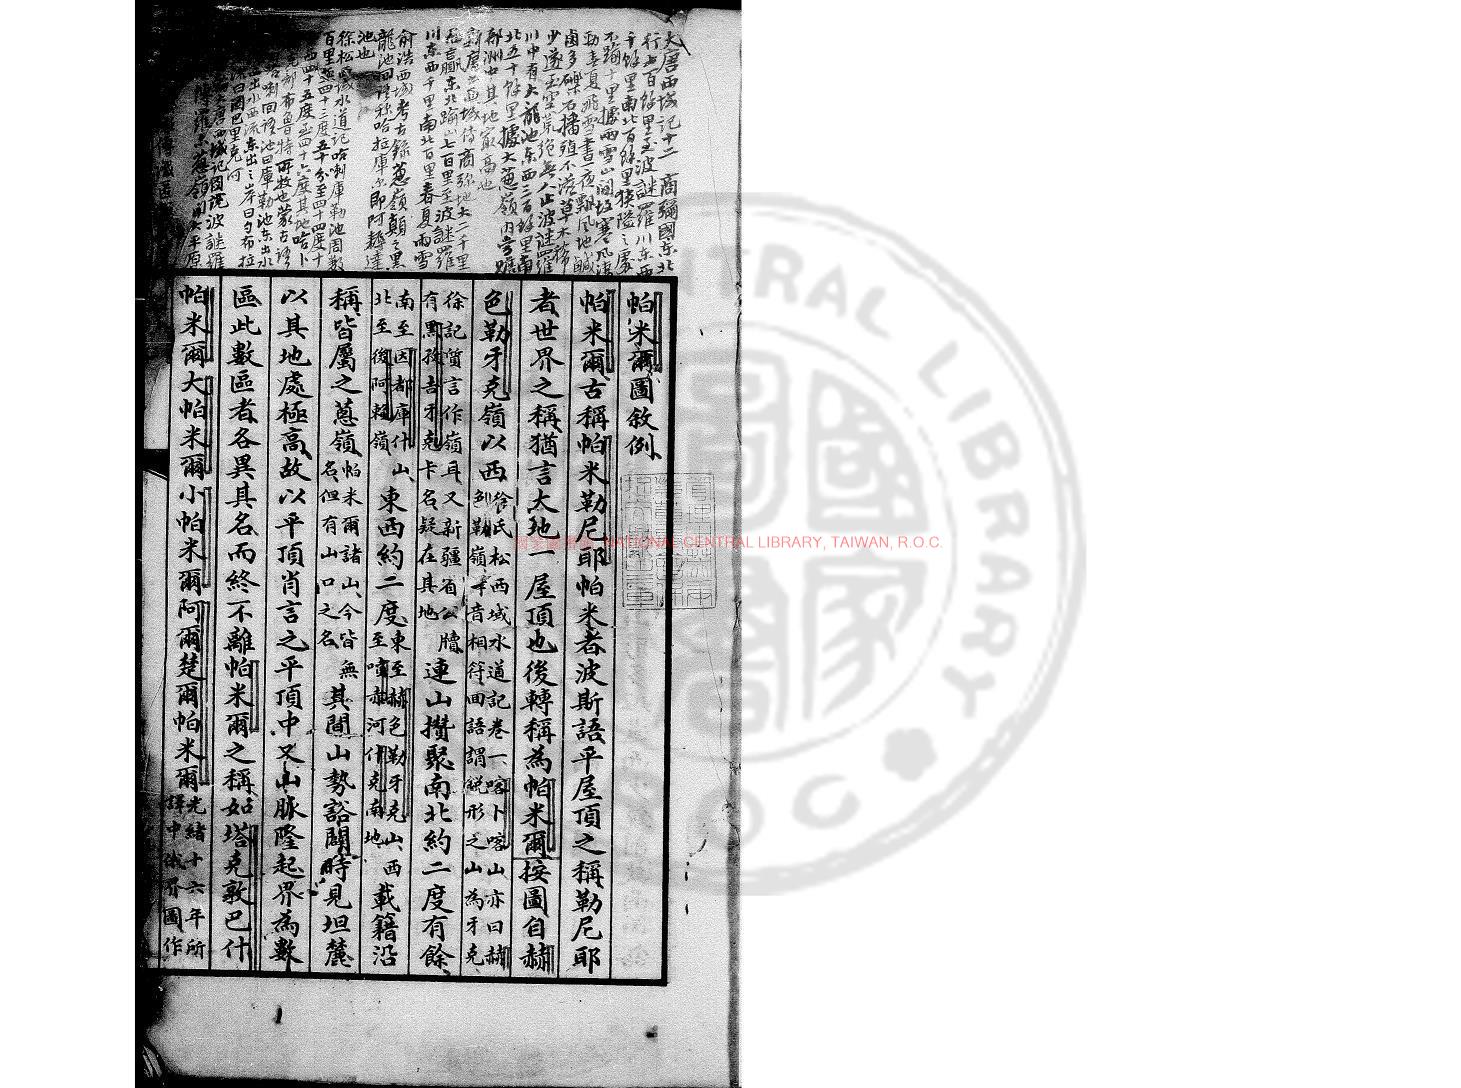 大唐西域記十二商彌國東北
行七百餘里至波謎羅川東西
千餘里南北百餘里狹隘之處
不踰十里據兩雪山間故寒風淒
勁春夏飛雪晝夜飄風地鹹
鹵多礫石播殖不滋草木稀
少遂至空荒絕無人止波謎羅
川中有大龍池東西三百餘里南
北五十餘里據大蔥嶺內當贍
部洲中其地最高也
新唐書西域傳商彌地大二千里
贏東北踰山七百里至波謎羅
川東西千里南北百里春夏雨雪
俞浩西域考古錄蔥嶺顛之黑
龍池回語稱哈拉庫爾即阿
池也
徐松西域水道記哈喇庫勒池周數
百里極四十三度五十分至四十四度十
西四十五度至四十六度其地哈卜
布魯特所牧也蒙古語
喇回語池曰庫勒池東出水
出水西流東出之岸曰勺布拉
圖巴里克河
大唐西域記圖說波謎羅
蔥嶺間大平原
帕米爾圖敘例
帕米爾古稱帕米勒尼耶帕米者波斯語平屋頂之稱勒尼耶
者世界之稱猶言大地一屋頂也後轉稱為帕米爾按圖自赫
色勒牙克嶺以西
徐氏松西域水道記卷一喀卜喀山亦曰赫
色勒嶺本音相符回語謂蛻形之山為牙克
徐記質言作嶺耳又新疆省公牘
有黑孜吉牙克卡名疑在其地
連山攢聚南北約二度有餘
南至因都庫什山
北至後阿賴嶺
東西約二度
東至赫色勒牙克山西
至噴赤河什克南地
載籍沿
稱皆屬之蔥嶺
帕米爾諸山今皆無
名但有山口之名
其間山勢谽閜時見坦麓
以其地處極高故以平頂肖言之平頂中又山脈隆起界為數
區此數區者各異其名而終不離帕米爾之稱如塔克敦巴什
帕米爾大帕米爾小帕米爾阿爾楚爾帕米爾
光緒十六年所
譯中俄界圖作
國家圖書館 NATIONAL CENTRAL LIBRARY, TAIWAN, R.O.C.
CENTRAL LIBRARY
R.O.C.